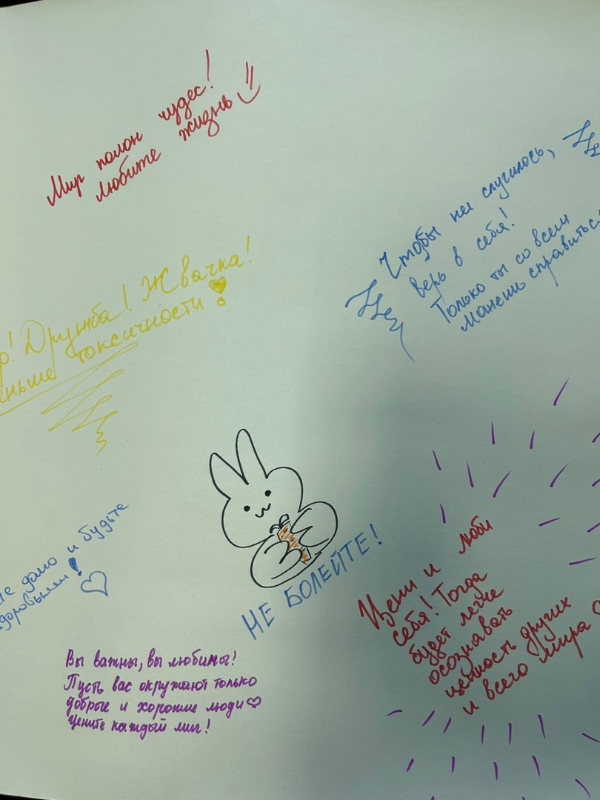 Мир полон чудес!
Любите жизнь
Чтобы не случилось,
верь в себя!
Только ты со всем
можешь справиться
! Дружба! Жвачка!
токсичности!
НЕ БОЛЕЙТЕ!
и будьте
здоровыми!
Цени и люби
себя! Тогда
будет легче
осознавать
ценность других
и всего мира
Вы важны, вы любимы!
Пусть вас окружают только
добрые и хорошие люди
Цените каждый миг!